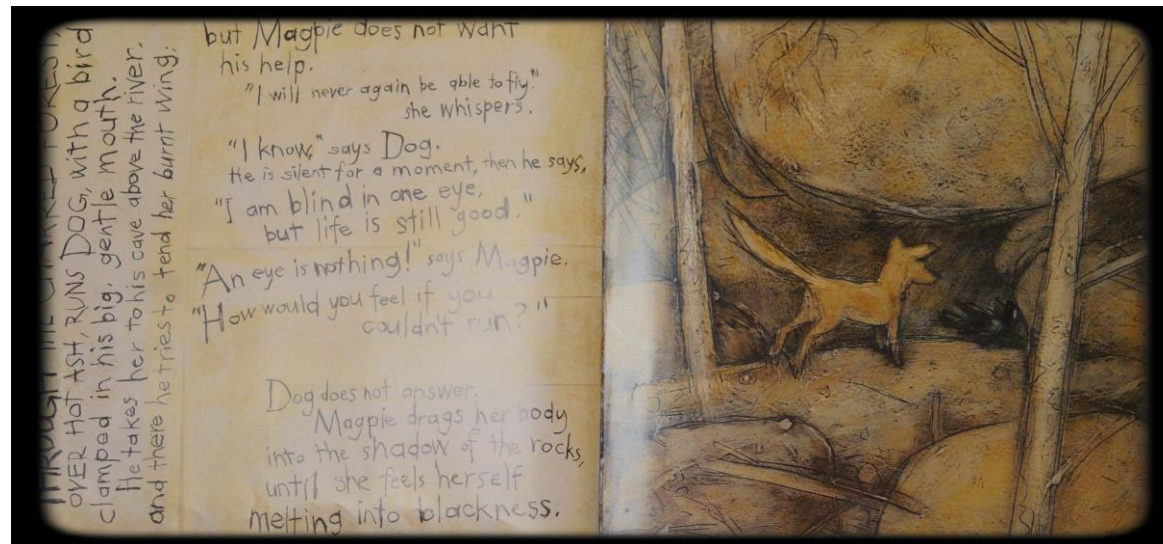 THROUGH THE CHARRED FOREST,
OVER HOT ASH, RUNS DOG, with a bird
clamped in his big, gentle mouth.
He takes her to his cave above the river.
and there he tries to tend her burnt wing:
but Magpie does not want
his help.
"I will never again be able to fly."
she whispers.
"I know," says Dog.
He is silent for a moment, then he says,
"I am blind in one eye,
but life is still good."
"An eye is nothing!" says Magpie.
"How would you feel if you
couldn't run?"
Dog does not answer.
Magpie drags her body
into the shadow of the rocks,
until she feels herself
melting into blackness.